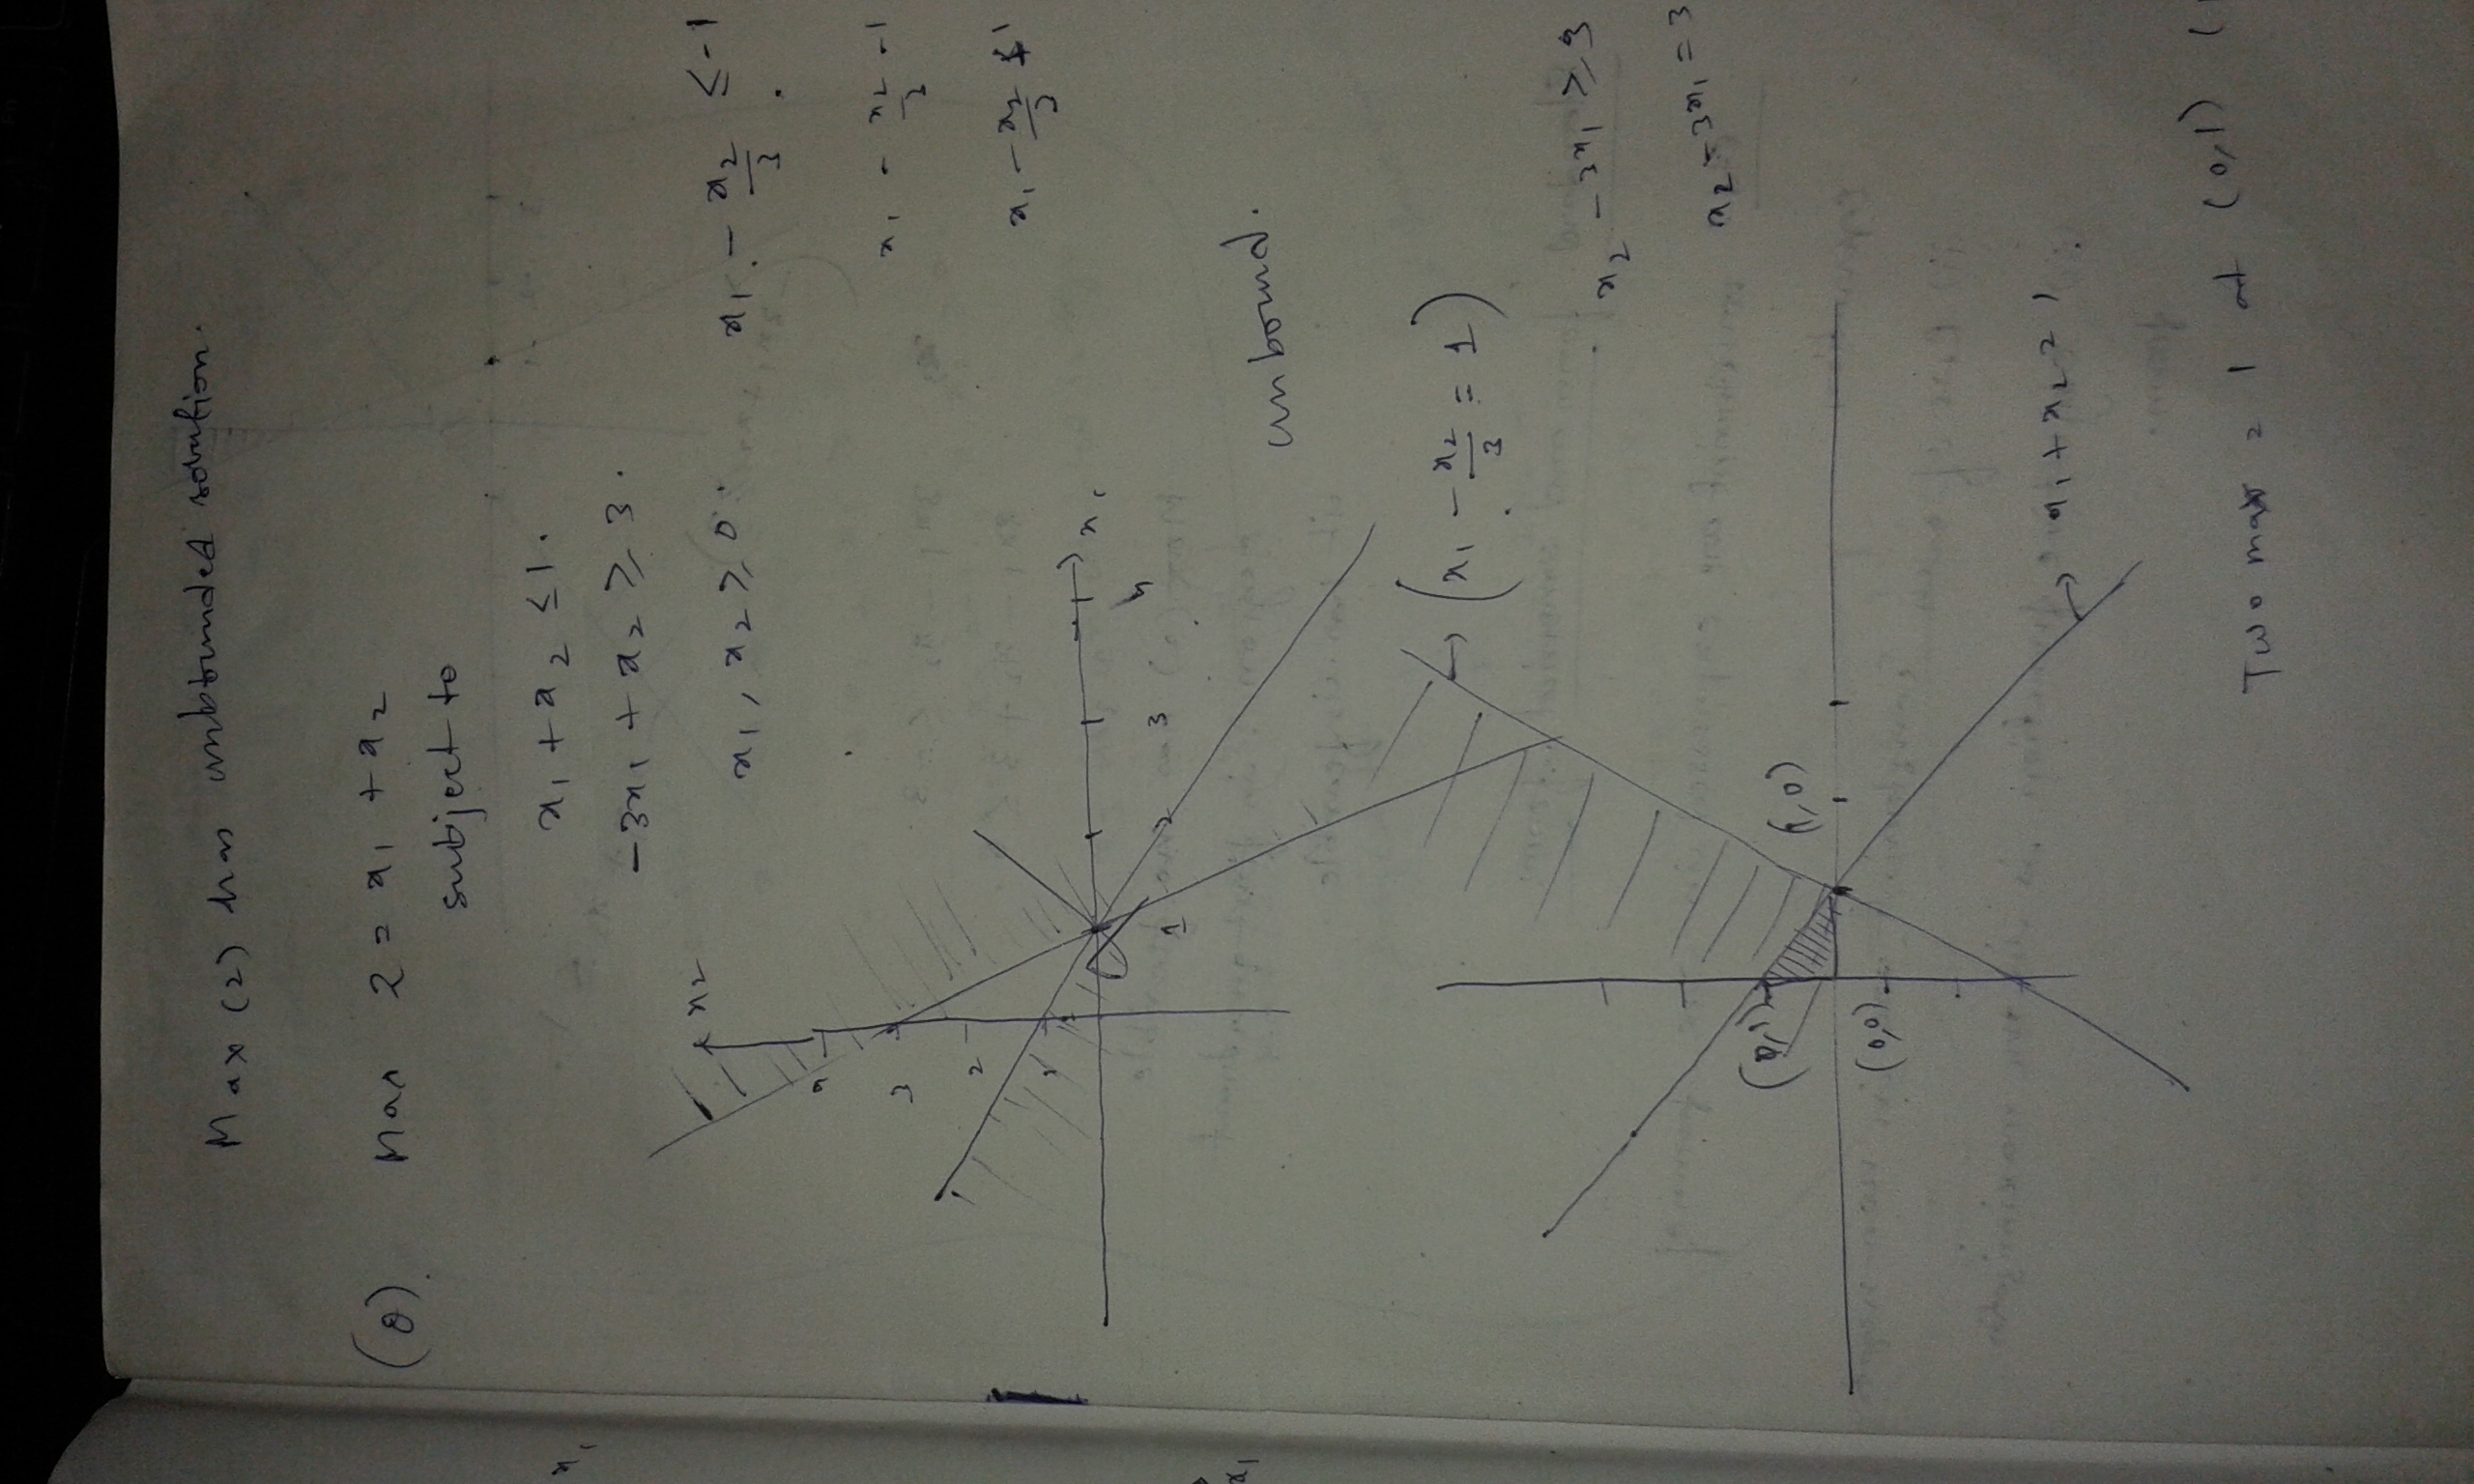 Max (z) has unbounded solution.
(Q). Max z = x₁ + x₂
subject to
x₁ + x₂ ≤ 1.
-3x₁ + x₂ ≥ 3.
x₁, x₂ ≥ 0.
x₁ - x₂/3 ≤ -1
x₂
4
3
x₁ - x₂/3 -1
2
x₁ - x₂/3
1
x₁
1 2 3 4
unbound.
(x₁ - x₂/3 = 1)
x₂ - 3x₁ ≥ 3
x₂ - 3x₁ = 3
(0,1)
(1,0)
(0,0)
x₁ + x₂ = 1
Two max = 1 at (0,1) (
x₁
x₁